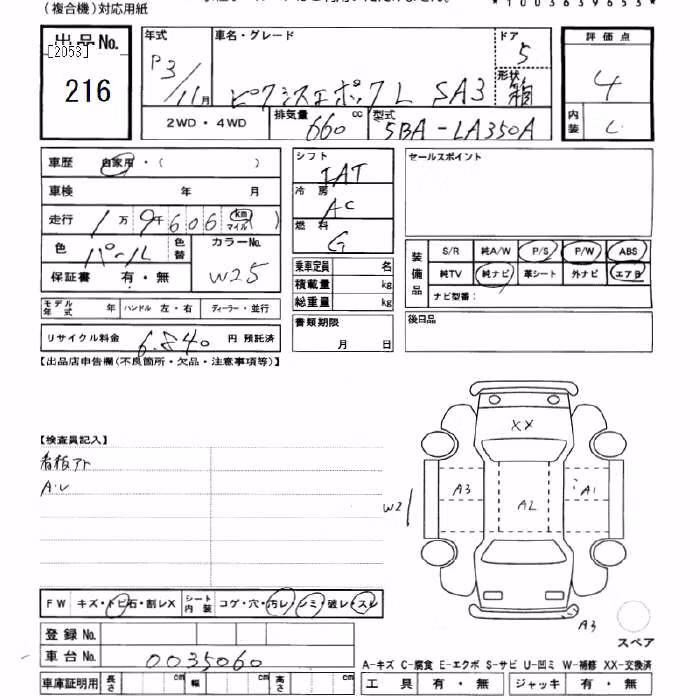 (複合機)対応用紙
*1003639653*
出品No.
[2053]
216
年式
P3/11月
車名・グレード
ピクシスエポック L SA3
ドア
5
形状
箱
評価点
4
内装
C
2WD・4WD
排気量 660 cc
型式 5BA-LA350A
車歴 自家用・( )
車検 年 月
走行 1万9千606 km マイル ( )
色 パール
色替
カラーNo.
W25
保証書 有・無
モデル年式 年 ハンドル 左・右 ディーラー・並行
リサイクル料金 6,840 円 預託済
シフト
IAT
冷房
AC
燃料
G
乗車定員 名
積載量 kg
総重量 kg
書類期限
月 日
セールスポイント
装備品
S/R 純A/W P/S P/W ABS
純TV 純ナビ 革シート 外ナビ エアB
ナビ型番:
後日品
【出品店申告欄(不良箇所・欠品・注意事項等)】
【検査員記入】
看板アト
A・U
XX
A3
A2
A1
W2
A3
スペア
FW キズ・トビ石・割レX シート内装 コゲ・穴・汚レ・シミ・破レ・スレ
登録No.
車台No. 0035060
車庫証明用 長さ cm 幅 cm 高さ cm
A-キズ C-腐食 E-エクボ S-サビ U-凹ミ W-補修 XX-交換済
工具 有・無 ジャッキ 有・無